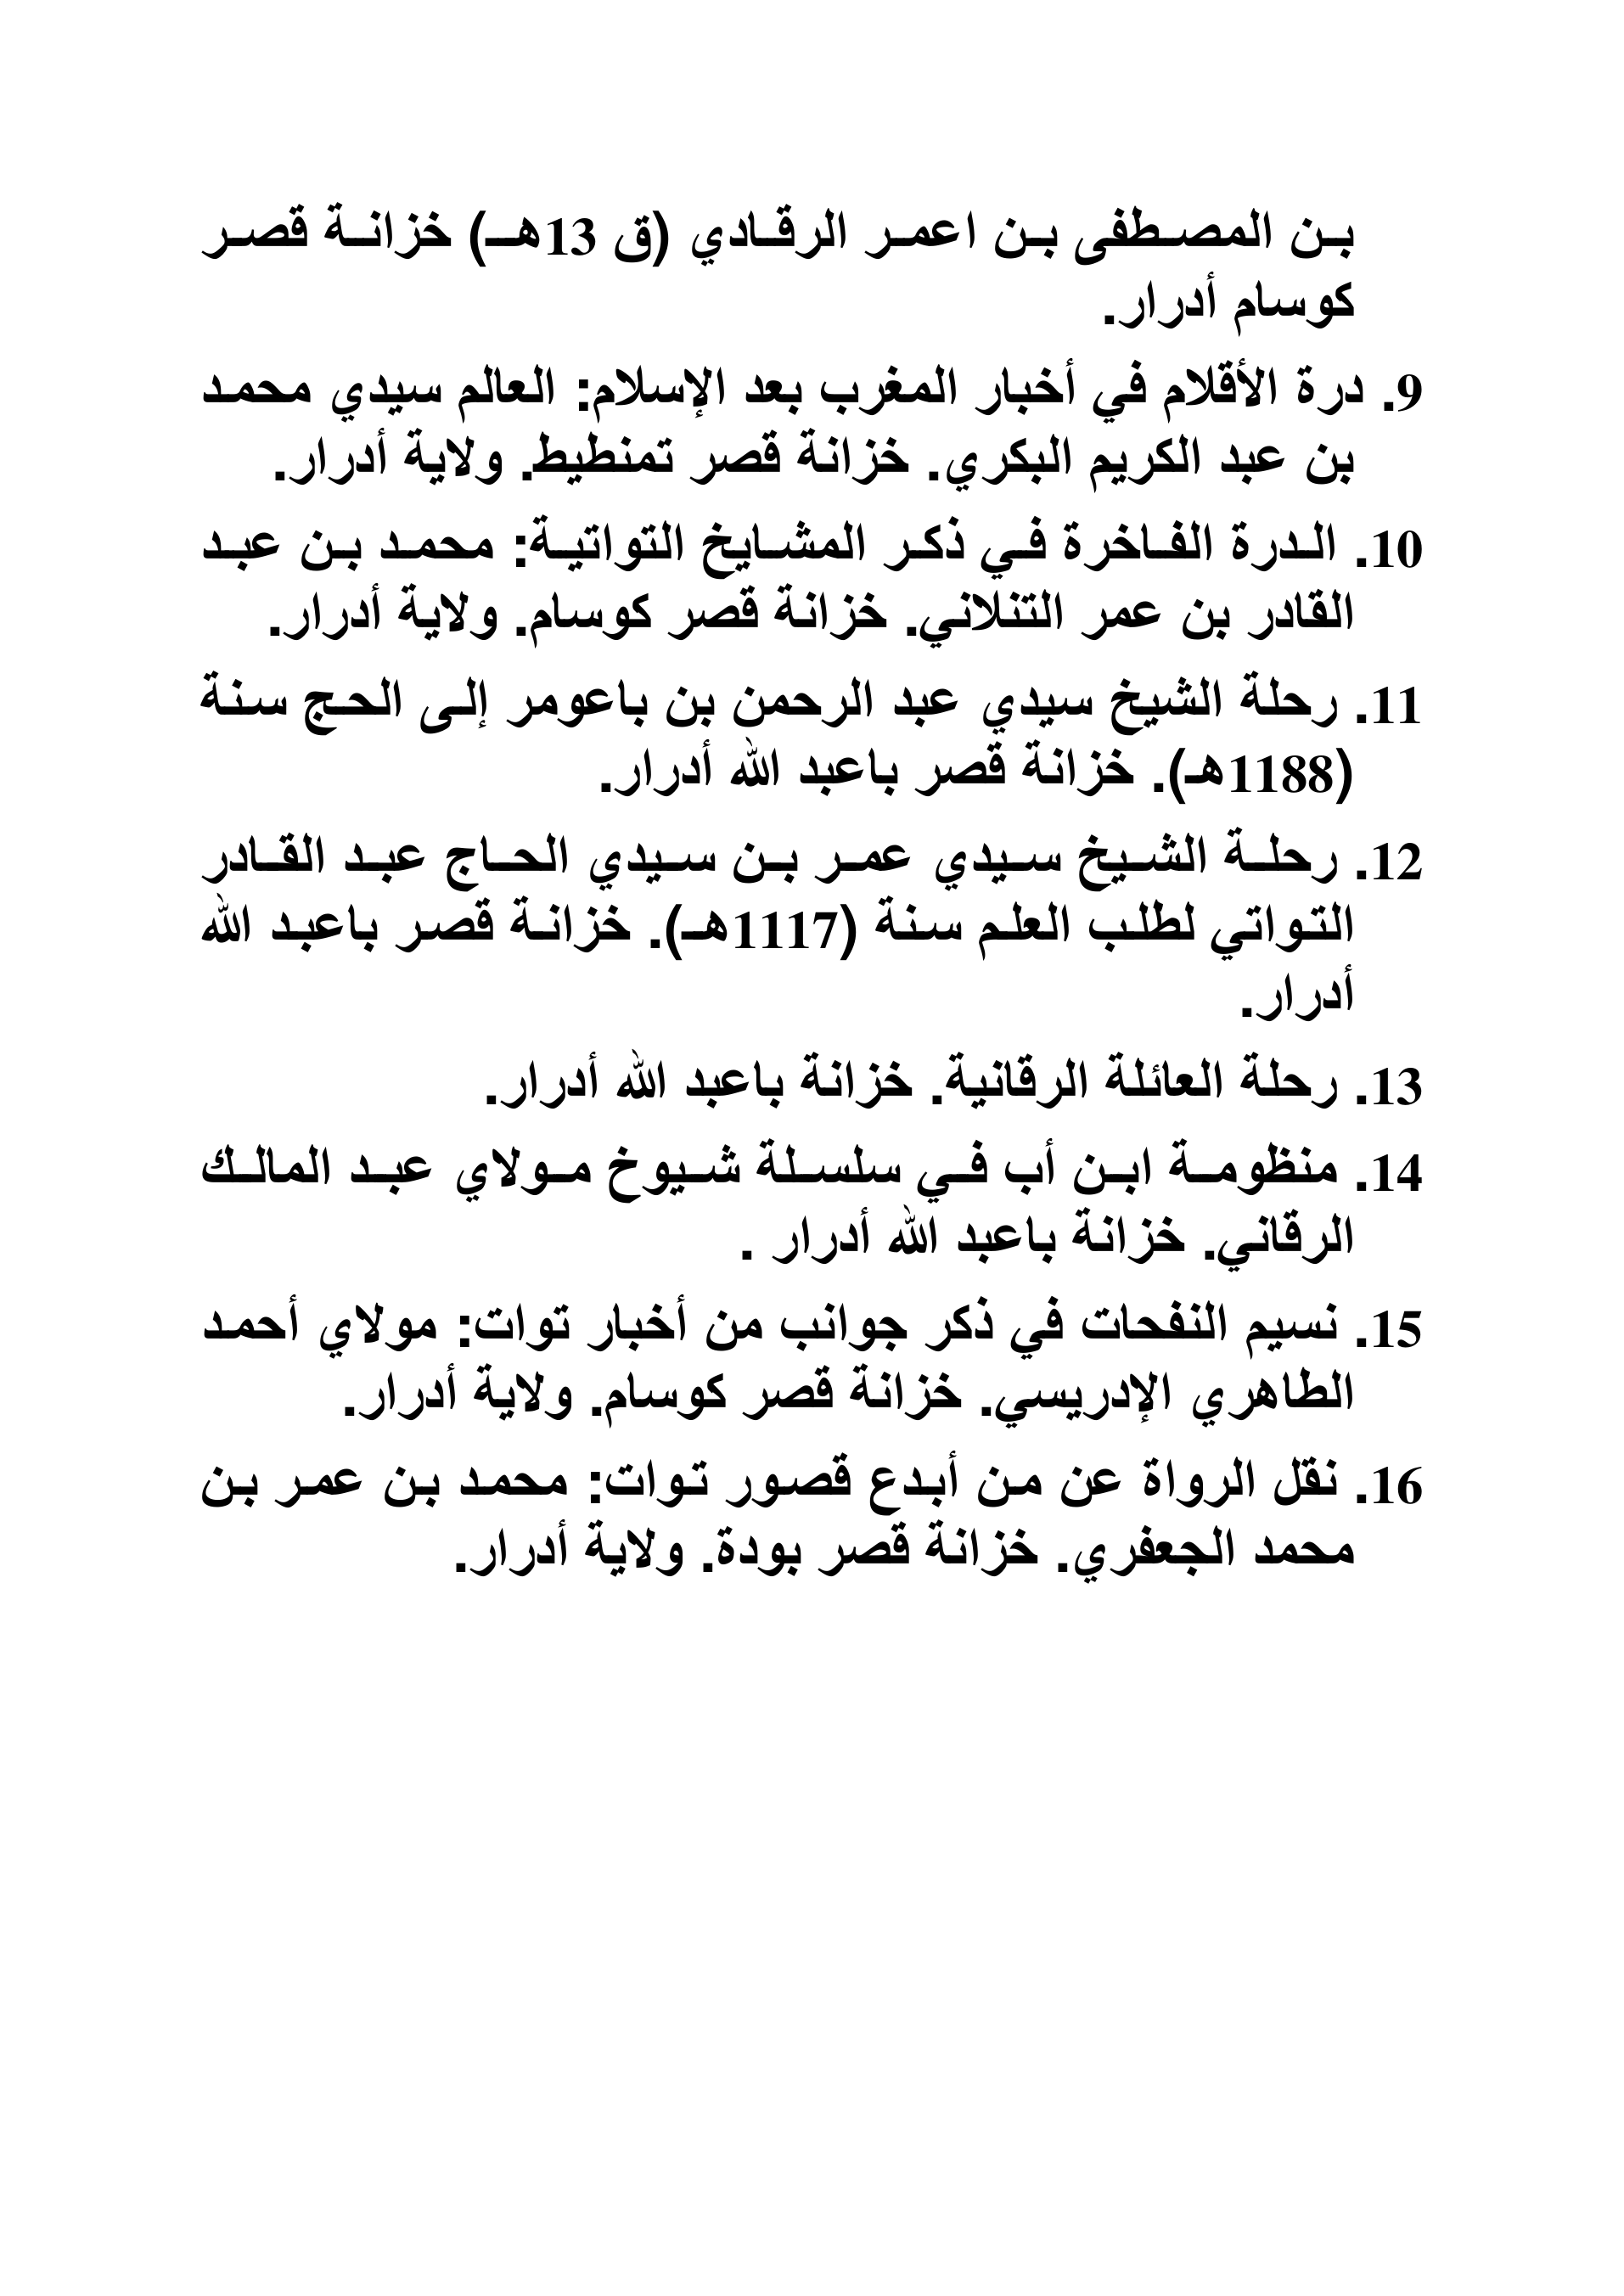 بن المصطفى بن اعمر الرقادي (ق 13هـ) خزانة قصر
كوسام أدرار.
9. درة الأقلام في أخبار المغرب بعد الإسلام: العالم سيدي محمد
بن عبد الكريم البكري. خزانة قصر تمنطيط. ولاية أدرار.
10. الدرة الفاخرة في ذكر المشايخ التواتية: محمد بن عبد
القادر بن عمر التنلاني. خزانة قصر كوسام. ولاية أدرار.
11. رحلة الشيخ سيدي عبد الرحمن بن باعومر إلى الحج سنة
(1188هـ). خزانة قصر باعبد الله أدرار.
12. رحلة الشيخ سيدي عمر بن سيدي الحاج عبد القادر
التواتي لطلب العلم سنة (1117هـ). خزانة قصر باعبد الله
أدرار.
13. رحلة العائلة الرقانية. خزانة باعبد الله أدرار.
14. منظومة ابن أب في سلسلة شيوخ مولاي عبد المالك
الرقاني. خزانة باعبد الله أدرار .
15. نسيم النفحات في ذكر جوانب من أخبار توات: مولاي أحمد
الطاهري الإدريسي. خزانة قصر كوسام. ولاية أدرار.
16. نقل الرواة عن من أبدع قصور توات: محمد بن عمر بن
محمد الجعفري. خزانة قصر بودة. ولاية أدرار.